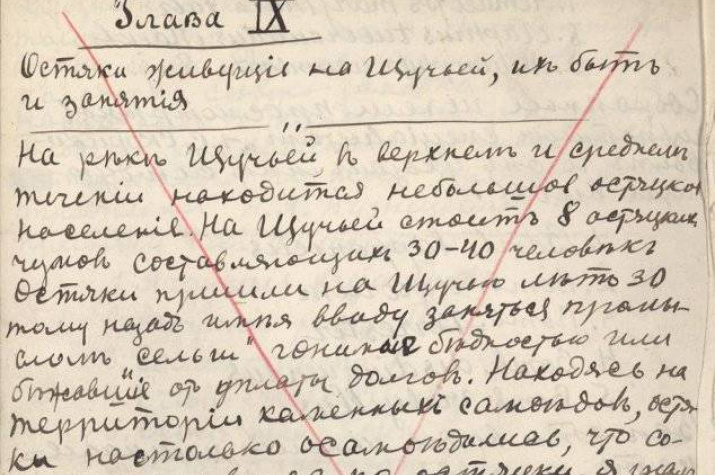 Глава IX
Остяки живущіе на Щучьей, ихъ бытъ
и занятія
На рѣкѣ Щучьей в верхнемъ и среднемъ
теченіи находится небольшое остяцкое
населеніе. На Щучьей стоитъ 8 остяцких
чумовъ составляющихъ 30-40 человѣкъ
Остяки пришли на Щучью лѣтъ 30
тому назадъ имѣя ввиду заняться промы-
сломъ "сельги" гонимые бѣдностью или
бѣжавшіе от уплаты долгов. Находясь на
территоріи каменныхъ самоѣдов, остя-
ки настолько осамоѣдились, что со-